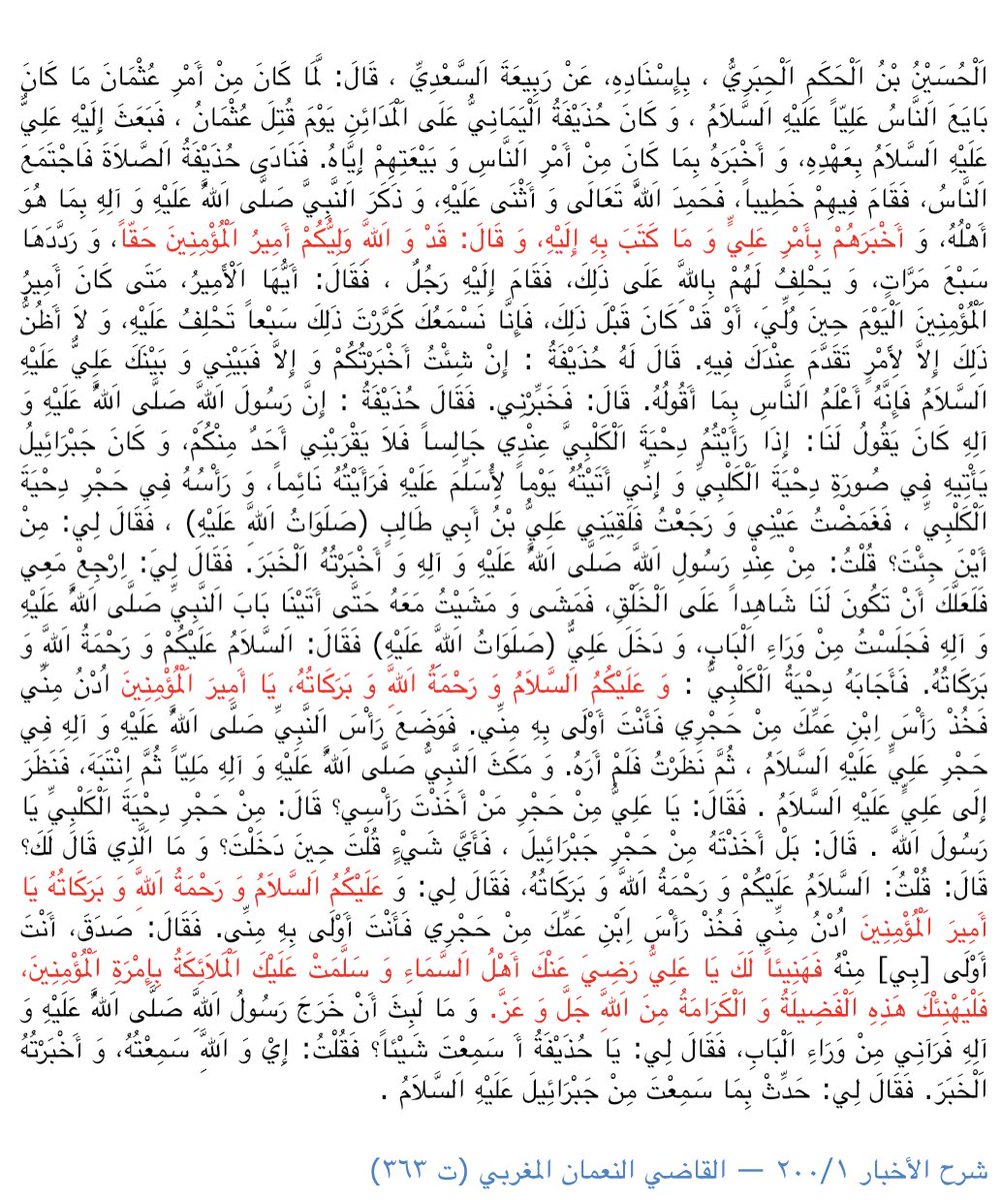 اَلْحُسَيْنُ بْنُ اَلْحَكَمِ اَلْحِبَرِيُّ ، بِإِسْنَادِهِ، عَنْ رَبِيعَةَ اَلسَّعْدِيِّ ، قَالَ: لَمَّا كَانَ مِنْ أَمْرِ عُثْمَانَ مَا كَانَ
بَايَعَ اَلنَّاسُ عَلِيّاً عَلَيْهِ اَلسَّلاَمُ ، وَ كَانَ حُذَيْفَةُ اَلْيَمَانِيُّ عَلَى اَلْمَدَائِنِ يَوْمَ قُتِلَ عُثْمَانُ ، فَبَعَثَ إِلَيْهِ عَلِيٌّ
عَلَيْهِ اَلسَّلاَمُ بِعَهْدِهِ، وَ أَخْبَرَهُ بِمَا كَانَ مِنْ أَمْرِ اَلنَّاسِ وَ بَيْعَتِهِمْ إِيَّاهُ. فَنَادَى حُذَيْفَةُ اَلصَّلاَةَ فَاجْتَمَعَ
اَلنَّاسُ، فَقَامَ فِيهِمْ خَطِيباً، فَحَمِدَ اَللَّهَ تَعَالَى وَ أَثْنَى عَلَيْهِ، وَ ذَكَرَ اَلنَّبِيَّ صَلَّى اَللَّهُ عَلَيْهِ وَ آلِهِ بِمَا هُوَ
أَهْلُهُ، وَ أَخْبَرَهُمْ بِأَمْرِ عَلِيٍّ وَ مَا كَتَبَ بِهِ إِلَيْهِ، وَ قَالَ: قَدْ وَ اَللَّهِ وَلِيُّكُمْ أَمِيرُ اَلْمُؤْمِنِينَ حَقّاً، وَ رَدَّدَهَا
سَبْعَ مَرَّاتٍ، وَ يَحْلِفُ لَهُمْ بِاللَّهِ عَلَى ذَلِكَ، فَقَامَ إِلَيْهِ رَجُلٌ ، فَقَالَ: أَيُّهَا اَلْأَمِيرُ، مَتَى كَانَ أَمِيرُ
اَلْمُؤْمِنِينَ اَلْيَوْمَ حِينَ وُلِّيَ، أَوْ قَدْ كَانَ قَبْلَ ذَلِكَ، فَإِنَّا نَسْمَعُكَ كَرَّرْتَ ذَلِكَ سَبْعاً تَحْلِفُ عَلَيْهِ، وَ لاَ أَظُنُّ
ذَلِكَ إِلاَّ لِأَمْرٍ تَقَدَّمَ عِنْدَكَ فِيهِ. قَالَ لَهُ حُذَيْفَةُ : إِنْ شِئْتُ أَخْبَرْتُكُمْ وَ إِلاَّ فَبَيْنِي وَ بَيْنَكَ عَلِيٌّ عَلَيْهِ
اَلسَّلاَمُ فَإِنَّهُ أَعْلَمُ اَلنَّاسِ بِمَا أَقُولُهُ. قَالَ: فَخَبِّرْنِي. فَقَالَ حُذَيْفَةُ : إِنَّ رَسُولَ اَللَّهِ صَلَّى اَللَّهُ عَلَيْهِ وَ
آلِهِ كَانَ يَقُولُ لَنَا: إِذَا رَأَيْتُمْ دِحْيَةَ اَلْكَلْبِيَّ عِنْدِي جَالِساً فَلاَ يَقْرَبْنِي أَحَدٌ مِنْكُمْ، وَ كَانَ جَبْرَائِيلُ
يَأْتِيهِ فِي صُورَةِ دِحْيَةَ اَلْكَلْبِيِّ وَ إِنِّي أَتَيْتُهُ يَوْماً لِأُسَلِّمَ عَلَيْهِ فَرَأَيْتُهُ نَائِماً، وَ رَأْسُهُ فِي حَجْرِ دِحْيَةَ
اَلْكَلْبِيِّ ، فَغَمَضْتُ عَيْنِي وَ رَجَعْتُ فَلَقِيَنِي عَلِيُّ بْنُ أَبِي طَالِبٍ (صَلَوَاتُ اَللَّهِ عَلَيْهِ) ، فَقَالَ لِي: مِنْ
أَيْنَ جِئْتَ؟ قُلْتُ: مِنْ عِنْدِ رَسُولِ اَللَّهِ صَلَّى اَللَّهُ عَلَيْهِ وَ آلِهِ وَ أَخْبَرْتُهُ اَلْخَبَرَ. فَقَالَ لِيَ: اِرْجِعْ مَعِي
فَلَعَلَّكَ أَنْ تَكُونَ لَنَا شَاهِداً عَلَى اَلْخَلْقِ، فَمَشَى وَ مَشَيْتُ مَعَهُ حَتَّى أَتَيْنَا بَابَ اَلنَّبِيِّ صَلَّى اَللَّهُ عَلَيْهِ
وَ آلِهِ فَجَلَسْتُ مِنْ وَرَاءِ اَلْبَابِ، وَ دَخَلَ عَلِيٌّ (صَلَوَاتُ اَللَّهِ عَلَيْهِ) فَقَالَ: اَلسَّلاَمُ عَلَيْكُمْ وَ رَحْمَةُ اَللَّهِ وَ
بَرَكَاتُهُ. فَأَجَابَهُ دِحْيَةُ اَلْكَلْبِيُّ : وَ عَلَيْكُمُ اَلسَّلاَمُ وَ رَحْمَةُ اَللَّهِ وَ بَرَكَاتُهُ، يَا أَمِيرَ اَلْمُؤْمِنِينَ اُدْنُ مِنِّي
فَخُذْ رَأْسَ اِبْنِ عَمِّكَ مِنْ حَجْرِي فَأَنْتَ أَوْلَى بِهِ مِنِّي. فَوَضَعَ رَأْسَ اَلنَّبِيِّ صَلَّى اَللَّهُ عَلَيْهِ وَ آلِهِ فِي
حَجْرِ عَلِيٍّ عَلَيْهِ اَلسَّلاَمُ ، ثُمَّ نَظَرْتُ فَلَمْ أَرَهُ. وَ مَكَثَ اَلنَّبِيُّ صَلَّى اَللَّهُ عَلَيْهِ وَ آلِهِ مَلِيّاً ثُمَّ اِنْتَبَهَ، فَنَظَرَ
إِلَى عَلِيٍّ عَلَيْهِ اَلسَّلاَمُ . فَقَالَ: يَا عَلِيُّ مِنْ حَجْرِ مَنْ أَخَذْتَ رَأْسِي؟ قَالَ: مِنْ حَجْرِ دِحْيَةَ اَلْكَلْبِيِّ يَا
رَسُولَ اَللَّهِ . قَالَ: بَلْ أَخَذْتَهُ مِنْ حَجْرِ جَبْرَائِيلَ ، فَأَيَّ شَيْءٍ قُلْتَ حِينَ دَخَلْتَ؟ وَ مَا اَلَّذِي قَالَ لَكَ؟
قَالَ: قُلْتُ: اَلسَّلاَمُ عَلَيْكُمْ وَ رَحْمَةُ اَللَّهِ وَ بَرَكَاتُهُ، فَقَالَ لِي: وَ عَلَيْكُمُ اَلسَّلاَمُ وَ رَحْمَةُ اَللَّهِ وَ بَرَكَاتُهُ يَا
أَمِيرَ اَلْمُؤْمِنِينَ اُدْنُ مِنِّي فَخُذْ رَأْسَ اِبْنِ عَمِّكَ مِنْ حَجْرِي فَأَنْتَ أَوْلَى بِهِ مِنِّي. فَقَالَ: صَدَقَ، أَنْتَ
أَوْلَى [بِي] مِنْهُ فَهَنِيئاً لَكَ يَا عَلِيُّ رَضِيَ عَنْكَ أَهْلُ السَّمَاءِ وَ سَلَّمَتْ عَلَيْكَ اَلْمَلاَئِكَةُ بِإِمْرَةِ اَلْمُؤْمِنِينَ،
فَلْيَهْنِئْكَ هَذِهِ اَلْفَضِيلَةُ وَ اَلْكَرَامَةُ مِنَ اَللَّهِ جَلَّ وَ عَزَّ. وَ مَا لَبِثَ أَنْ خَرَجَ رَسُولُ اَللَّهِ صَلَّى اَللَّهُ عَلَيْهِ وَ
آلِهِ فَرَآنِي مِنْ وَرَاءِ اَلْبَابِ، فَقَالَ لِي: يَا حُذَيْفَةُ أَ سَمِعْتَ شَيْئاً؟ فَقُلْتُ: إِيْ وَ اَللَّهِ سَمِعْتُهُ، وَ أَخْبَرْتُهُ
اَلْخَبَرَ. فَقَالَ لِي: حَدِّثْ بِمَا سَمِعْتَ مِنْ جَبْرَائِيلَ عَلَيْهِ اَلسَّلاَمُ .
شرح الأخبار ٢٠٠/١ — القاضي النعمان المغربي (ت ٣٦٣)